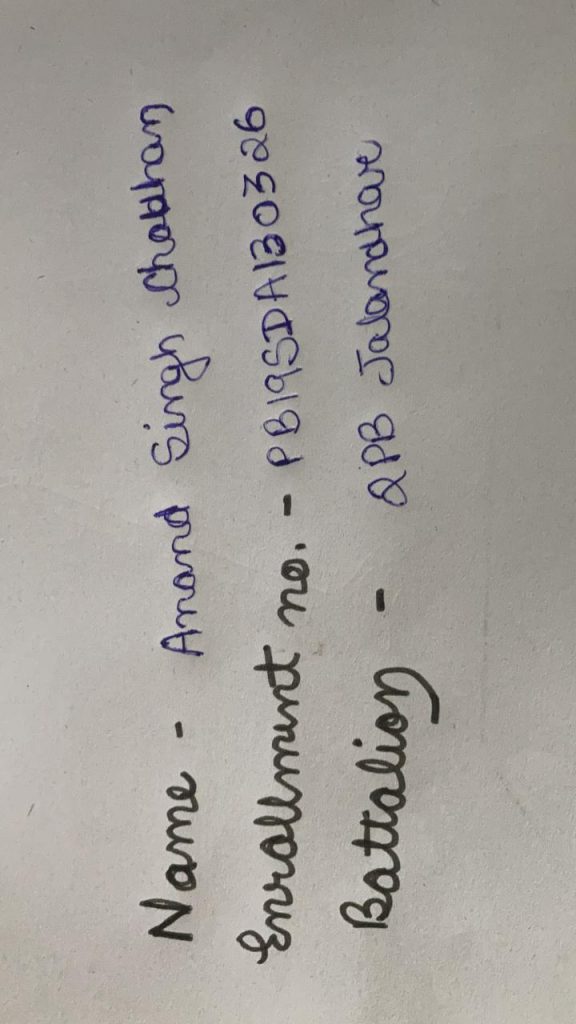 Name - Anand Singh Chauhan
Enrollment no. - PB19SDA130326
Battalion - 2PB Jalandhar